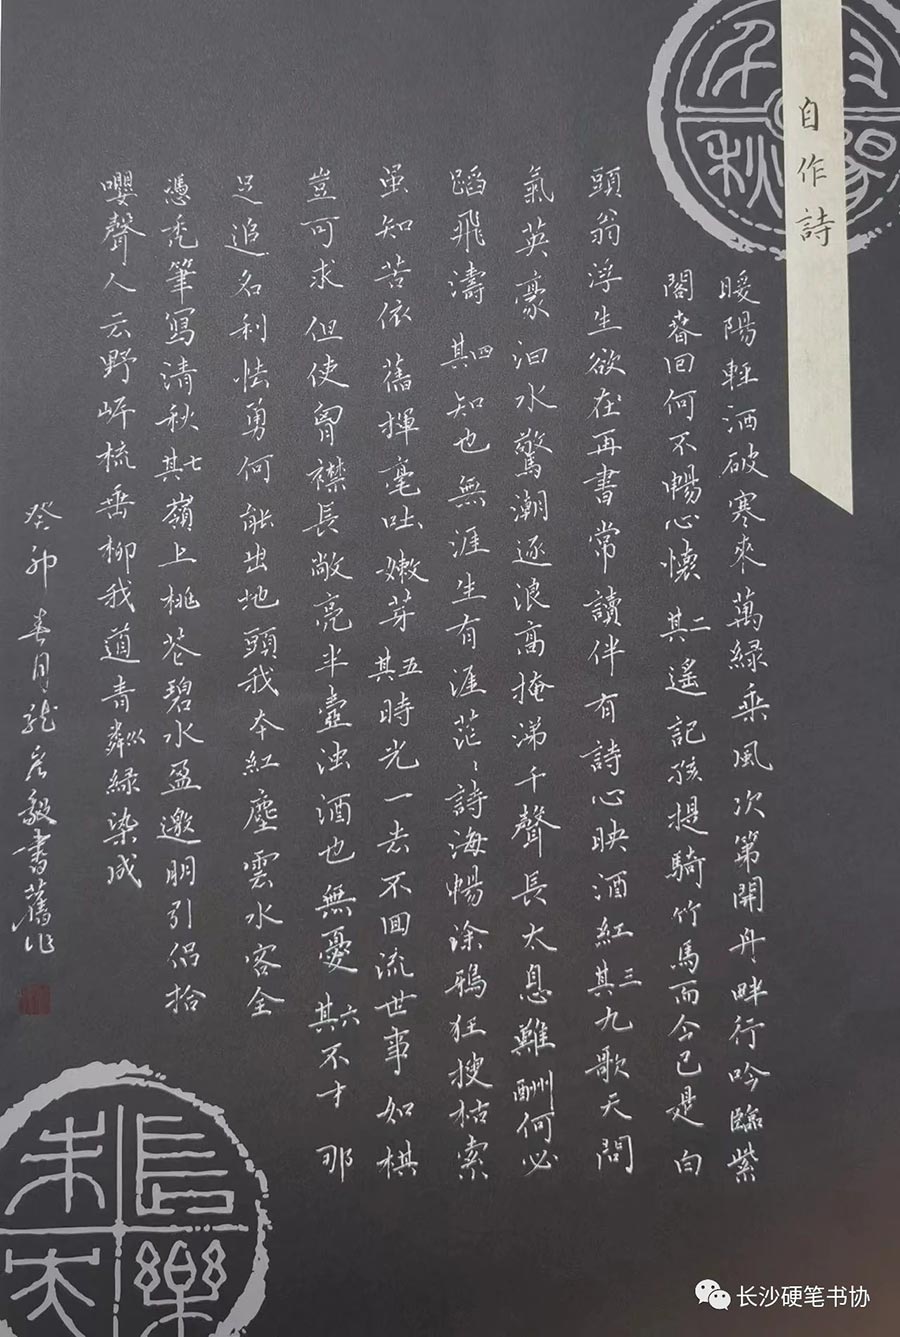 自作詩
暖陽輕洒破寒來萬綠乘風次第開舟畔行吟臨紫
閣春回何不暢心懷其二遙記孩提騎竹馬而今已是白
頭翁浮生欲在再書常讀伴有詩心映酒紅其三九歌天問
氣英豪汨水驚潮逐浪高掩涕千聲長太息難酬何必
蹈飛濤其四知也無涯生有涯茫〻詩海暢涂鴉狂搜枯索
虽知苦依舊揮毫吐嫩芽其五時光一去不回流世事如棋
豈可求但使胷襟長敞亮半壺浊酒也無憂其六不才那
足追名利怯勇何能出地頭我本紅塵雲水客全
憑禿筆寫清秋其七嶺上桃花碧水盈邀朋引侣拾
嚶聲人云野岼梳垂柳我道青粼以綠染成
癸卯春月龍彦毅書舊作
千秋
長樂未央
长沙硬笔书协